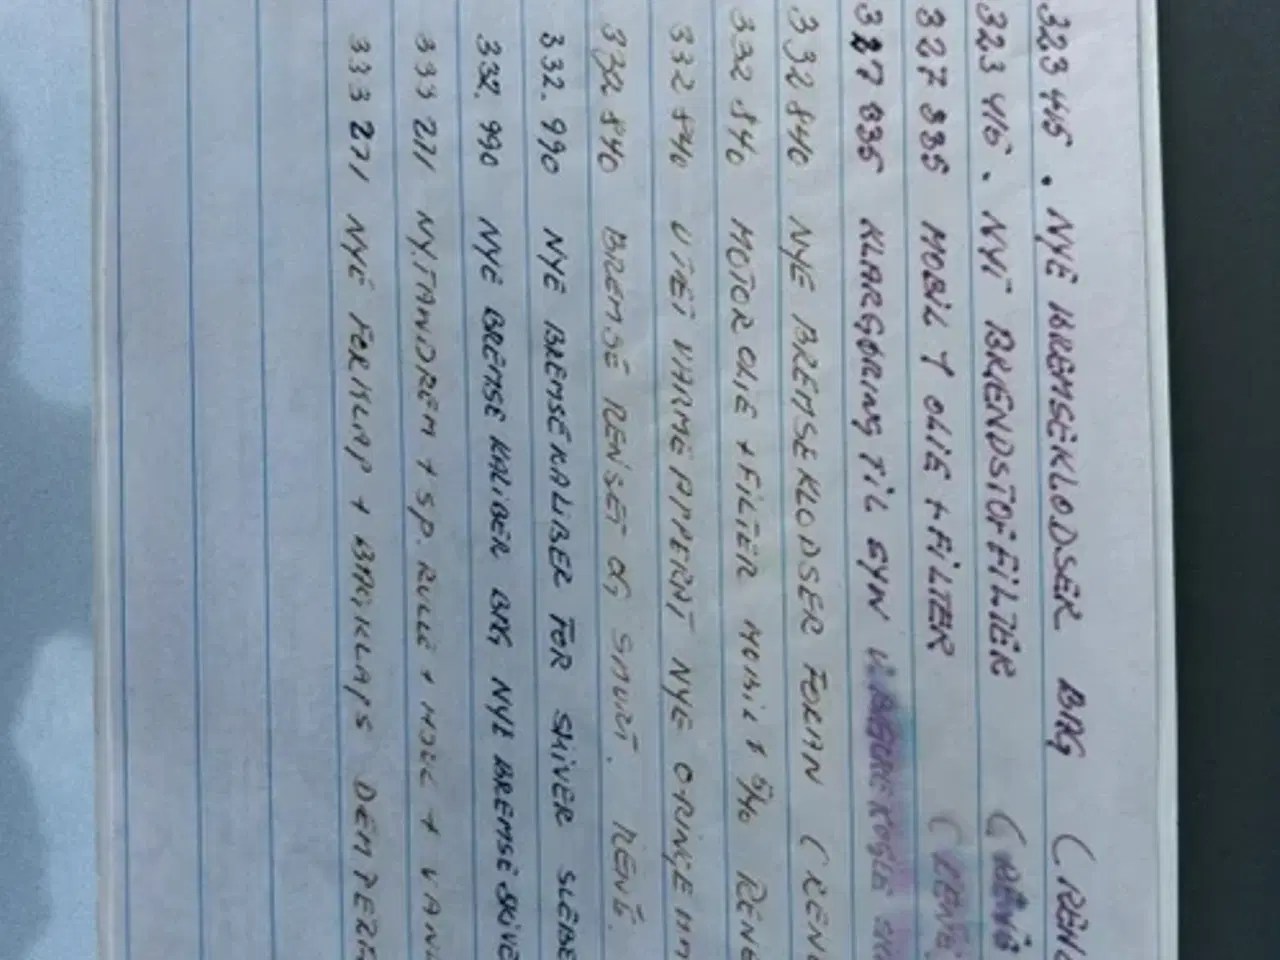 323 415 . NYE BREMSEKLODSER BAG (RENÉ
323 415 . NYT BRÆNDSTOFFILTER (RENÉ
327 335 MOBIL 1 OLIE + FILTER (RENÉ
327 335 KLARGØRING TIL SYN
332 840 NYE BREMSEKLODSER FORAN (RENÉ
332 840 MOTOR OLIE + FILTER MOBIL 1 5/40 RENÉ
332 840 VARMEAPPERAT NYE ORINGE MM
332 840 BREMSE RENSET OG SMURT. RENÉ.
332.990 NYE BREMSEKALIBER FOR SKIVER SLEBE
332.990 NYE BREMSE KALIBER BAG NYE BREMSESKIVE
333 271 NY.TANDREM + SP. RULLE + HJUL + VAND
333 271 NYE FORKLAP + BAGKLAPS DEMPERE